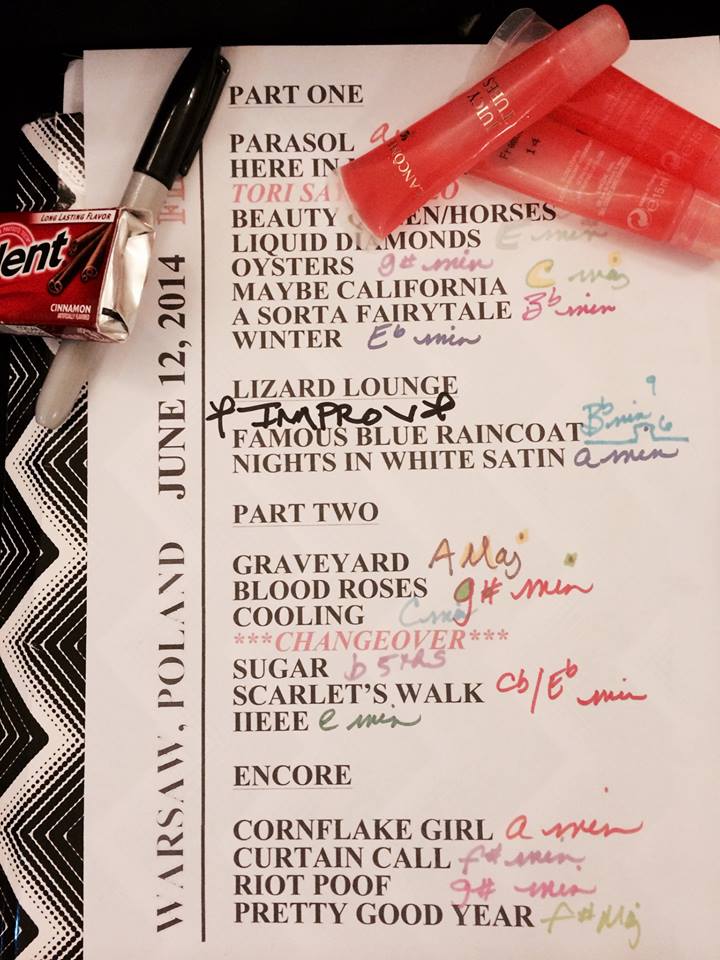 PART ONE
PARASOL a
HERE IN
TORI SAY
BEAUTY EN/HORSES
LIQUID DIAMONDS E min
OYSTERS g# min
MAYBE CALIFORNIA C maj
A SORTA FAIRYTALE Bb min
WINTER Eb min
LIZARD LOUNGE
IMPROV
FAMOUS BLUE RAINCOAT Bb min 9 6
NIGHTS IN WHITE SATIN a min
PART TWO
GRAVEYARD A Maj
BLOOD ROSES g# min
COOLING C maj
***CHANGEOVER***
SUGAR b 5THS
SCARLET'S WALK Cb/Eb min
IIEEE e min
ENCORE
CORNFLAKE GIRL a min
CURTAIN CALL f# min
RIOT POOF g# min
PRETTY GOOD YEAR f# Maj
WARSAW, POLAND JUNE 12, 2014
LONG LASTING FLAVOR
dent
CINNAMON
ARTIFICIALLY FLAVORED
LANCOME
JUICY TUBES
14
e 15ml